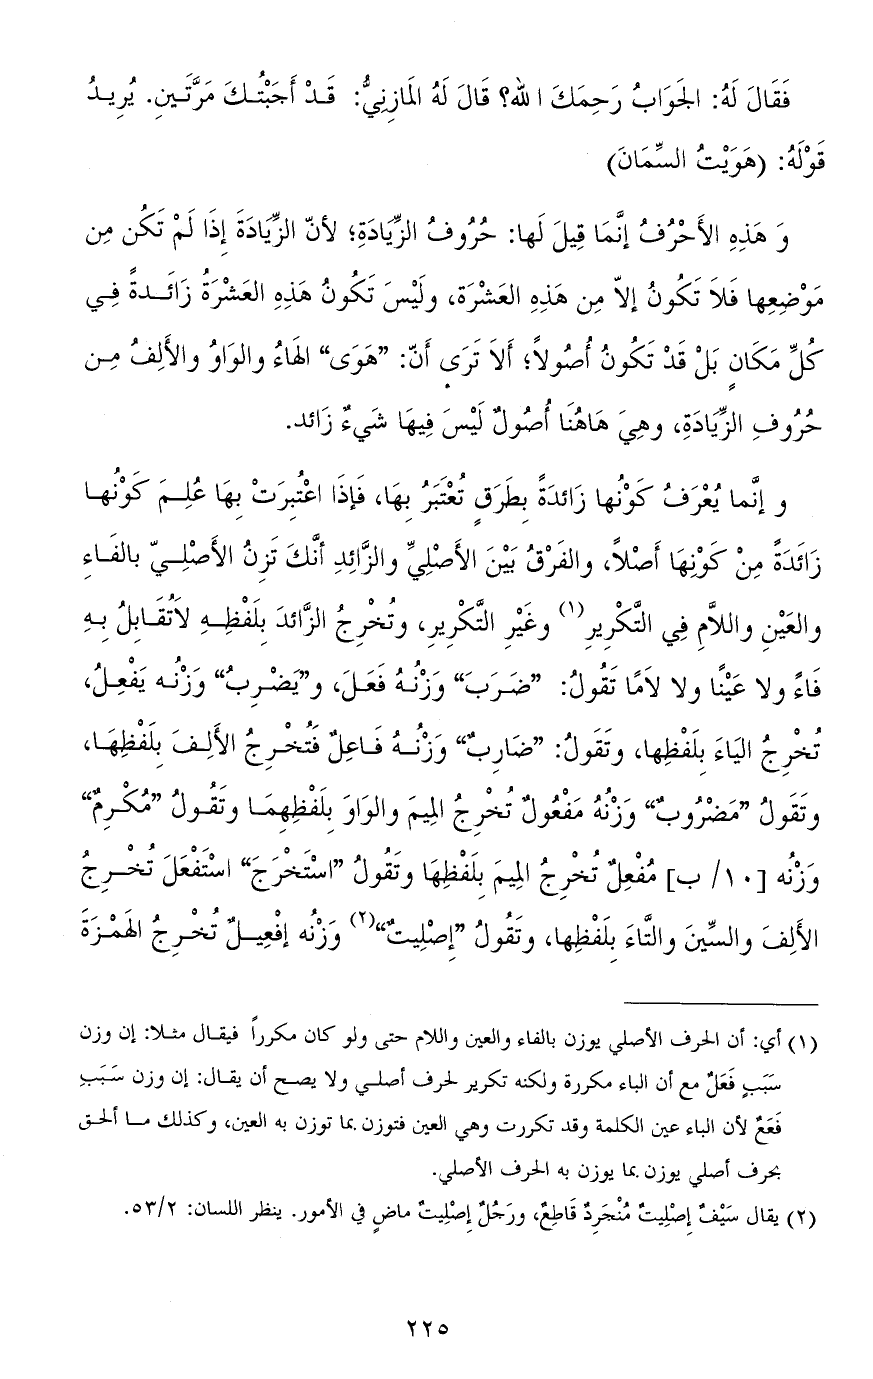 فَقَالَ لَهُ: الجَوَابُ رَحِمَكَ الله؟ قَالَ لَهُ المَازِنِيُّ: قَـدْ أَجَبْتُـكَ مَرَّتَـينِ. يُرِيـدُ
قَوْلَهُ: (هَوَيْتُ السِّمَانَ)
وَ هَذِهِ الأَحْرُفُ إنَّمَا قِيلَ لَها: حُرُوفُ الزِّيَادَةِ؛ لأنّ الزِّيَادَةَ إذَا لَمْ تَكُن مِن
مَوْضِعِها فَلاَ تَكُونُ إلاّ مِن هَذِهِ العَشْرَة، ولَيْسَ تَكُونُ هَذِهِ العَشْرَةُ زَائـدةً فِـي
كُلِّ مَكَانٍ بَلْ قَدْ تَكُونُ أُصُولاً؛ ألاَ تَرَى أنّ: ”هَوَى“ الهَاءُ والوَاوُ والألِفُ مِـن
حُرُوفِ الزِّيَادَةِ، وهِيَ هَاهُنَا أُصُولٌ لَيْسَ فِيهَا شَيءٌ زَائد.
و إنَّما يُعْرَفُ كَوْنُها زَائدَةً بِطَرَقٍ تُعْتَبَرُ بِهَا، فَإذَا اعْتُبِرَتْ بِهَا عُلِـمَ كَوْنُهـا
زَائدَةً مِنْ كَوْنِهَا أصْلاً، والفَرْقُ بَيْنَ الأصْلِيِّ والزَّائِدِ أنَّكَ تَزِنُ الأصْلِـيّ بالفَـاءِ
والعَيْنِ واللاَّمِ فِي التَّكْرِيرِ(١) وغَيْرِ التَّكْرِيرِ، وتُخْرِجُ الزَّائدَ بِلَفْظِـهِ لاَتُقَـابِلُ بـهِ
فَاءً ولا عَيْنًا ولا لاَمًا تَقُولُ: ”ضَـرَبَ“ وَزْنُـهُ فَعَلَ، و”يَضْرِبُ“ وَزْنُـه يَفْعِلُ،
تُخْرِجُ اليَاءَ بِلَفْظِها، وتَقُولُ: ”ضَارِبٌ“ وَزْنُـهُ فَـاعِلٌ فَتُخْـرِجُ الأَلِـفَ بِلَفْظِهَـا،
وتَقُولُ ”مَضْرُوبٌ“ وَزْنُهُ مَفْعُولٌ تُخْرِجُ المِيمَ والوَاوَ بِلَفْظِهِمَـا وتَقُـولُ ”مُكْرِمٌ“
وَزْنُه [١٠/ ب] مُفْعِلٌ تُخْرِجُ المِيمَ بِلَفْظِهَا وتَقُولُ ”اسْتَخْرَجَ“ اسْتَفْعَلَ تُخْـرِجُ
الألِفَ والسِّينَ والتَّاءَ بِلَفْظِها، وتَقُولُ ”إصْلِيتٌ“(٢) وَزْنُه إفْعِيـلٌ تُخْـرِجُ الهَمْزَةَ
(١) أي: أن الحرف الأصلي يوزن بالفاء والعين واللام حتى ولو كان مكرراً فيقـال مثـلا: إن وزن
سَبَبٍ فَعَلٌ مع أن الباء مكررة ولكنه تكرير لحرف أصلـي ولا يصـح أن يقـال: إن وزن سَبَبٍ
فَعَعٌ لأن الباء عين الكلمة وقد تكررت وهي العين فتوزن بما توزن به العين، وكذلك مـا ألحـق
بحرف أصلي يوزن بما يوزن به الحرف الأصلي.
(٢) يقال سَيْفٌ إصْلِيتٌ مُنْجَرِدٌ قَاطِعٌ، ورَجُلٌ إصْلِيتٌ ماضٍ في الأمور. ينظر اللسان: ٥٣/٢.
٢٢٥